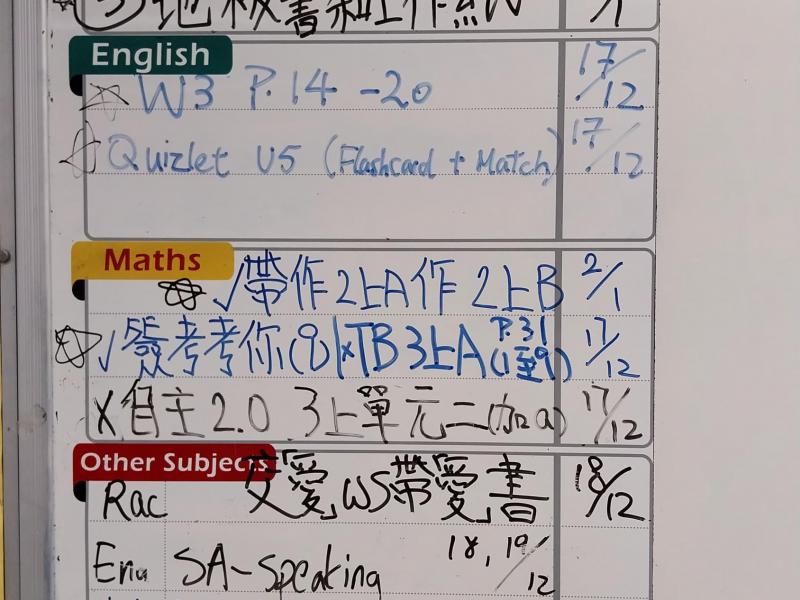 地 板書和工作紙
English
W3 P.14 -20 17/12
Quizlet U5 (Flashcard + Match) 17/12
Maths
✓帶作2上A作 2上B 2/1
✓簽考考你(8)|×TB3上A(P.31 1至9) 17/12
X自主2.0 3上單元二(加a) 17/12
Other Subjects
Rac 交「愛」WS帶「愛」書 18/12
SA-Speaking 18, 19/12